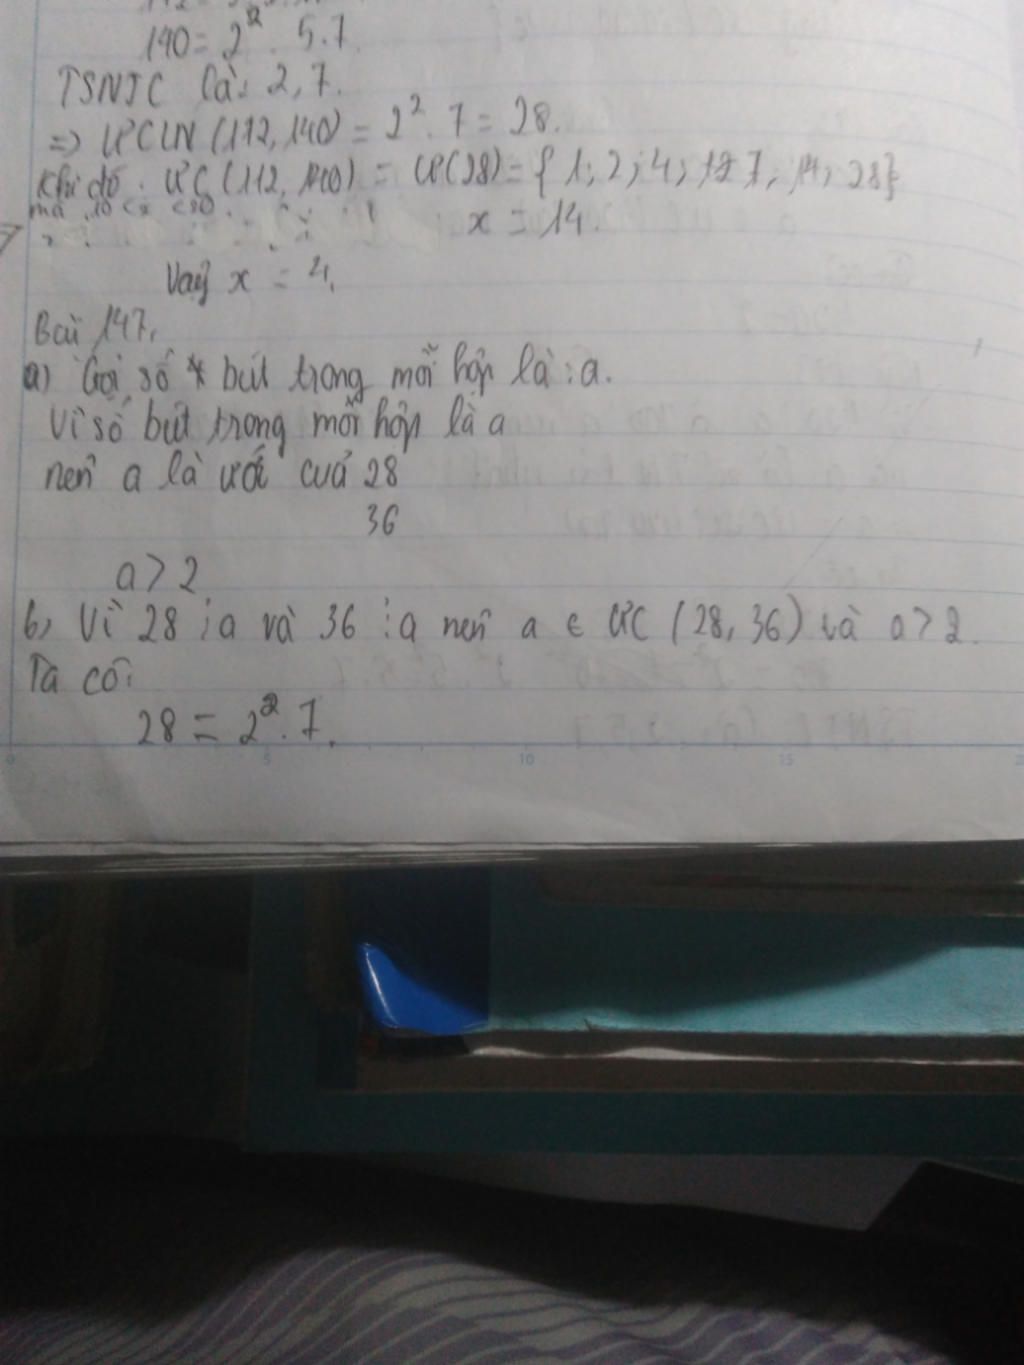 140 = 2². 5.7.
TSNTC là: 2, 7.
=> ƯCLN (112, 140) = 2². 7 = 28.
Khi đó: ƯC (112, 140) = Ư(28) = { 1; 2; 4; 7; 14; 28}
mà 10 < x < 20. x = 14.
Vậy x = 4.
Bài 147.
a) Gọi số bút trong mỗi hộp là: a.
Vì số bút trong mỗi hộp là a
nên a là ước của 28
36
a > 2
b) Vì 28 ⋮ a và 36 ⋮ a nên a ∈ ƯC (28, 36) và a > 2.
Ta có:
28 = 2². 7.
0 5 10 15